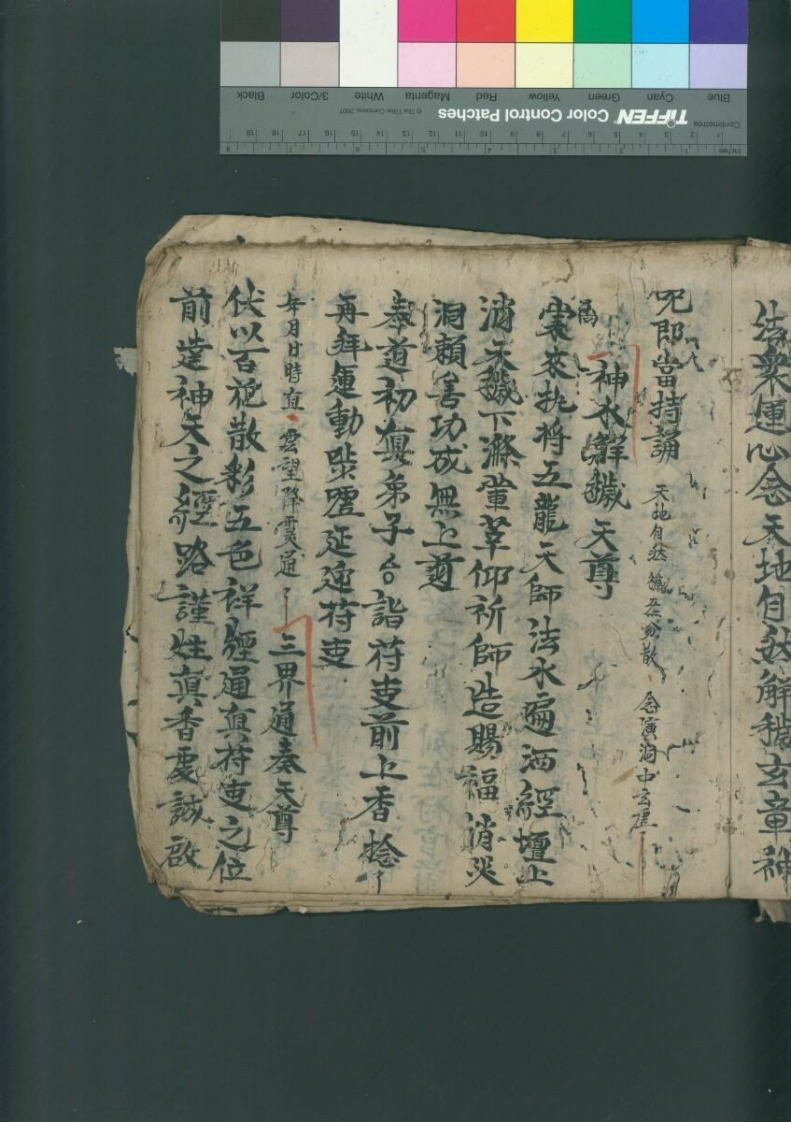 法衆運心念天地自然解穢玄章神
呪即當持誦 天地自然 穢炁分散 念演洞中玄虛
神水解穢天尊
爲
蒙衣執將五龍天師法水遍洒經壇上
消天穢下滌葷草仰祈師造賜福消災
洞賴善功成無上道
奉道初眞弟子 詣符吏前上香捻
再拜運動 延迎符吏
年月日時直 雲望降靈通 三界通奏天尊
伏以百花散彩五色祥 通眞符吏之位
前達神天之經路謹炷眞香虔誠啟
Blue
Cyan
Green
Yellow
Red
Magenta
White
3/Color
Black
TIFFEN Color Control Patches
© The Tiffen Company, 2007
Centimetres
Inches